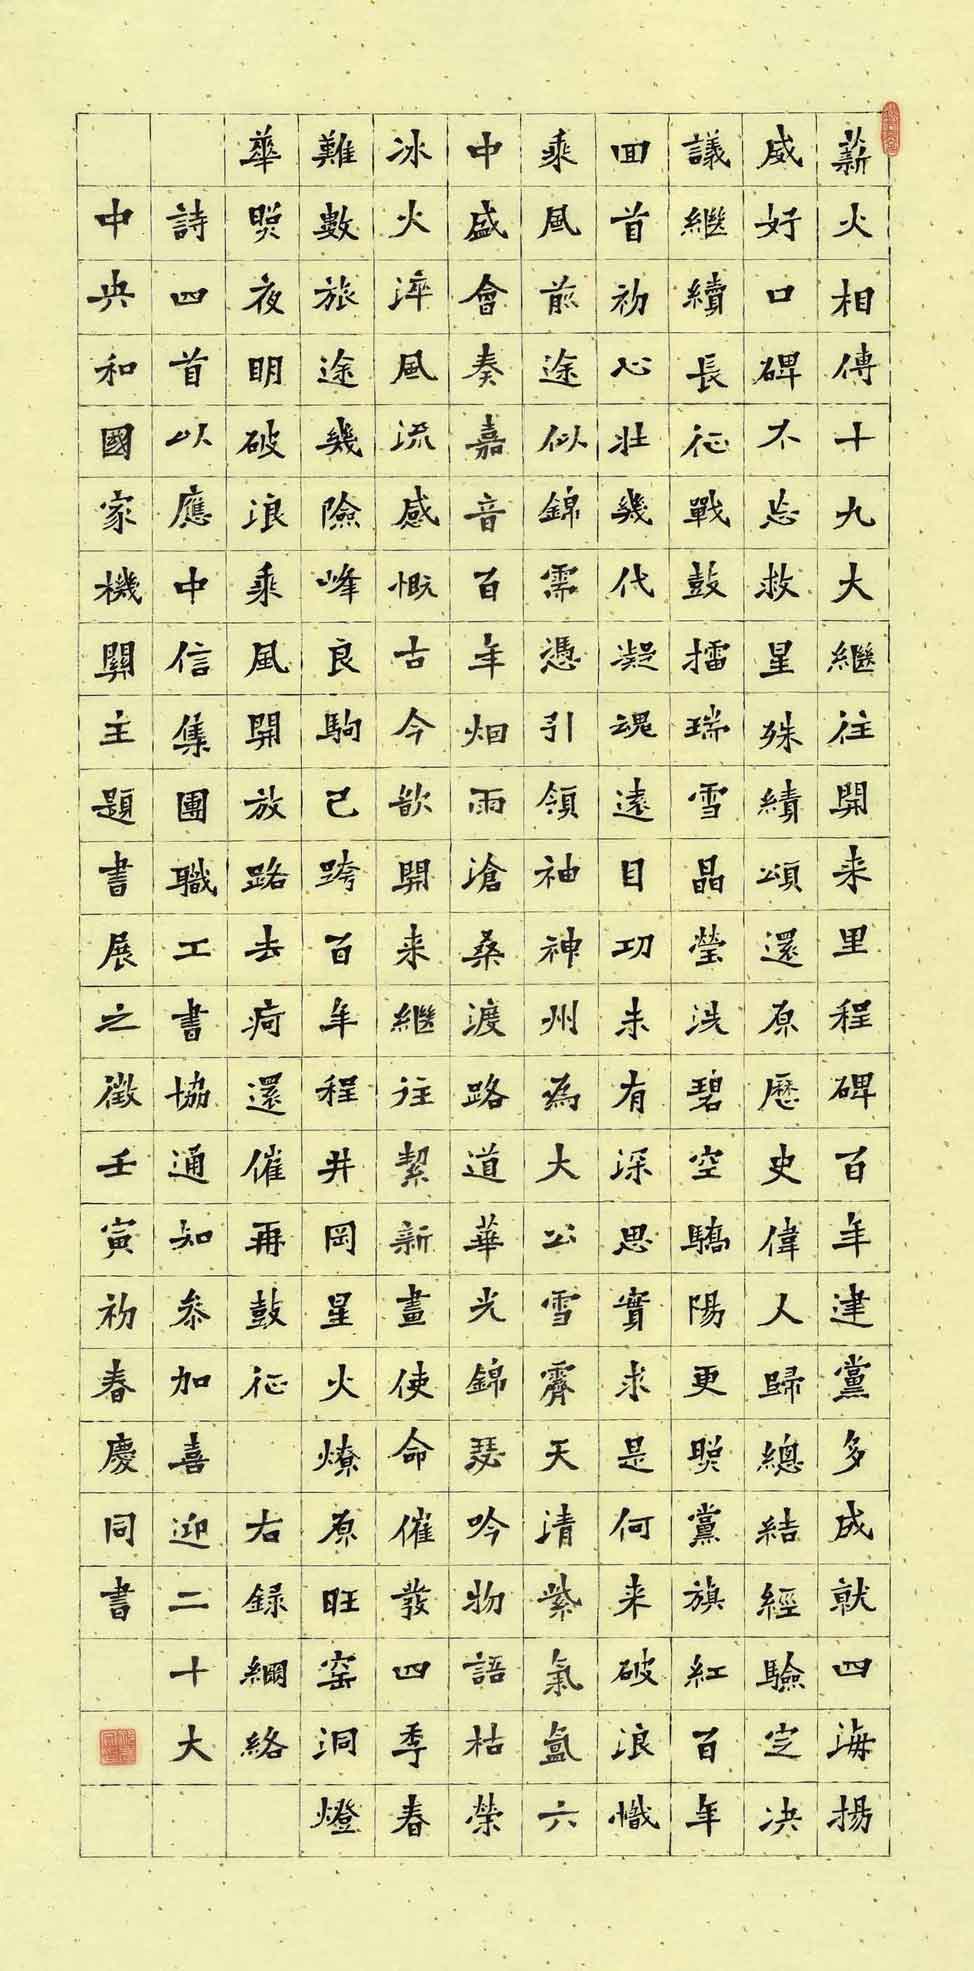 薪火相傳十九大繼往開来里程碑百年建黨多成就四海揚
威好口碑不忘救星殊績頌還原歷史偉人歸總結經驗定决
議繼續長征戰鼓擂瑞雪晶瑩洗碧空驕陽更照黨旗紅百年
回首初心壯幾代凝魂遠目功未有深思實求是何来破浪幟
乘風前途似錦需憑引領袖神州為大公雪霽天清紫氣氳六
中盛會奏嘉音百年烟雨滄桑渡路道華光錦瑟吟物語枯榮
冰火淬風流感慨古今歆開来繼往絜新畫使命催發四季春
難數旅途幾險峰良駒已跨百年程井岡星火燎原旺窑洞燈
華照夜明破浪乘風開放路去疴還催再鼓征 右録網絡
詩四首以應中信集團職工書協通知參加喜迎二十大
中央和國家機關主題書展之徵壬寅初春慶同書